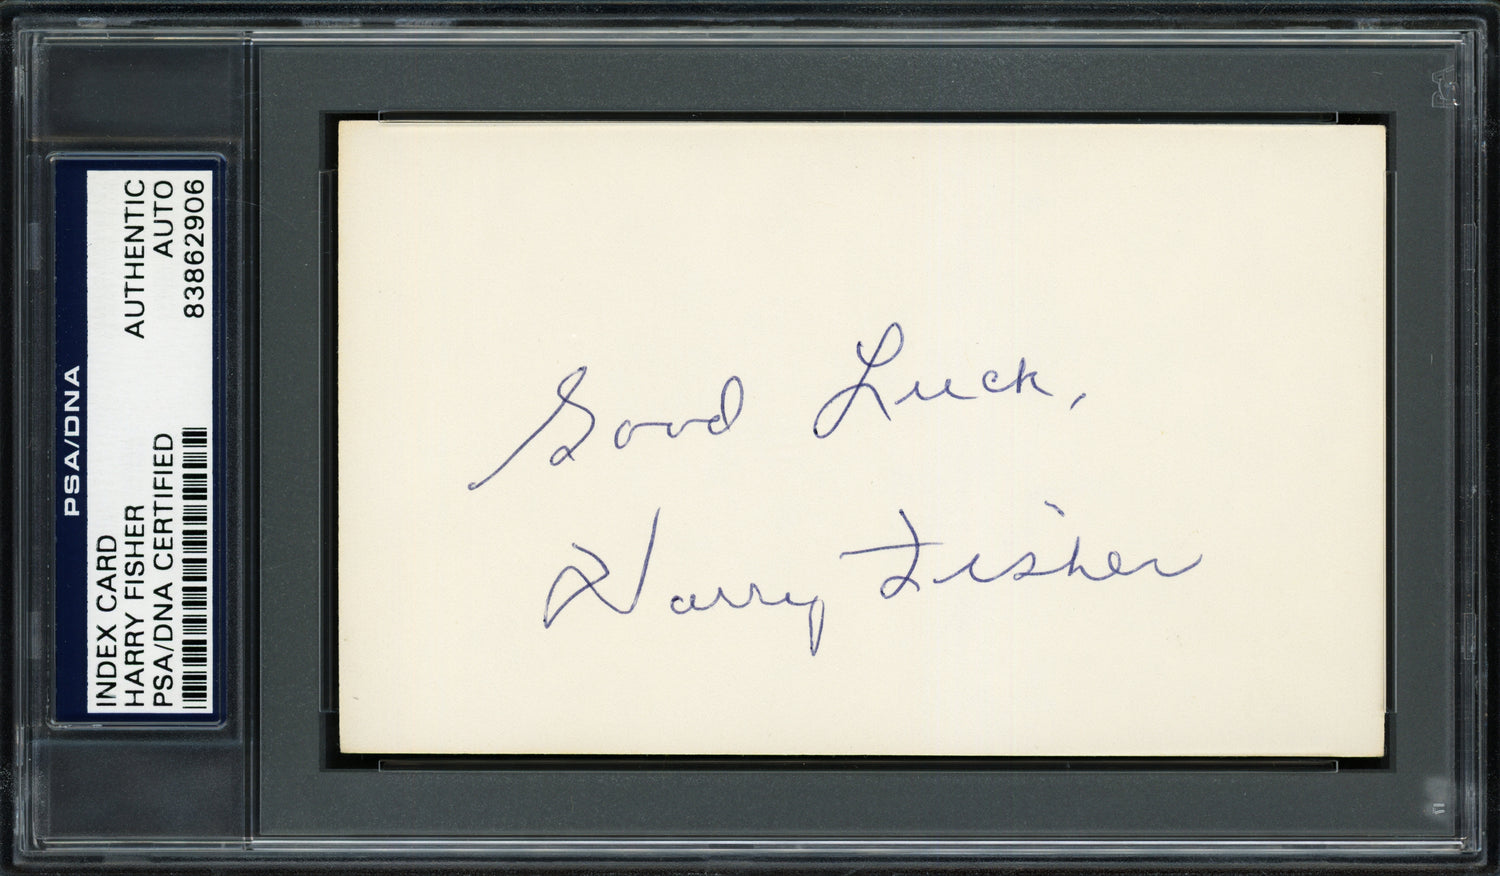 PSA/DNA
INDEX CARD
AUTHENTIC
HARRY FISHER
AUTO
PSA/DNA CERTIFIED
83862906
Good Luck,
Harry Fisher